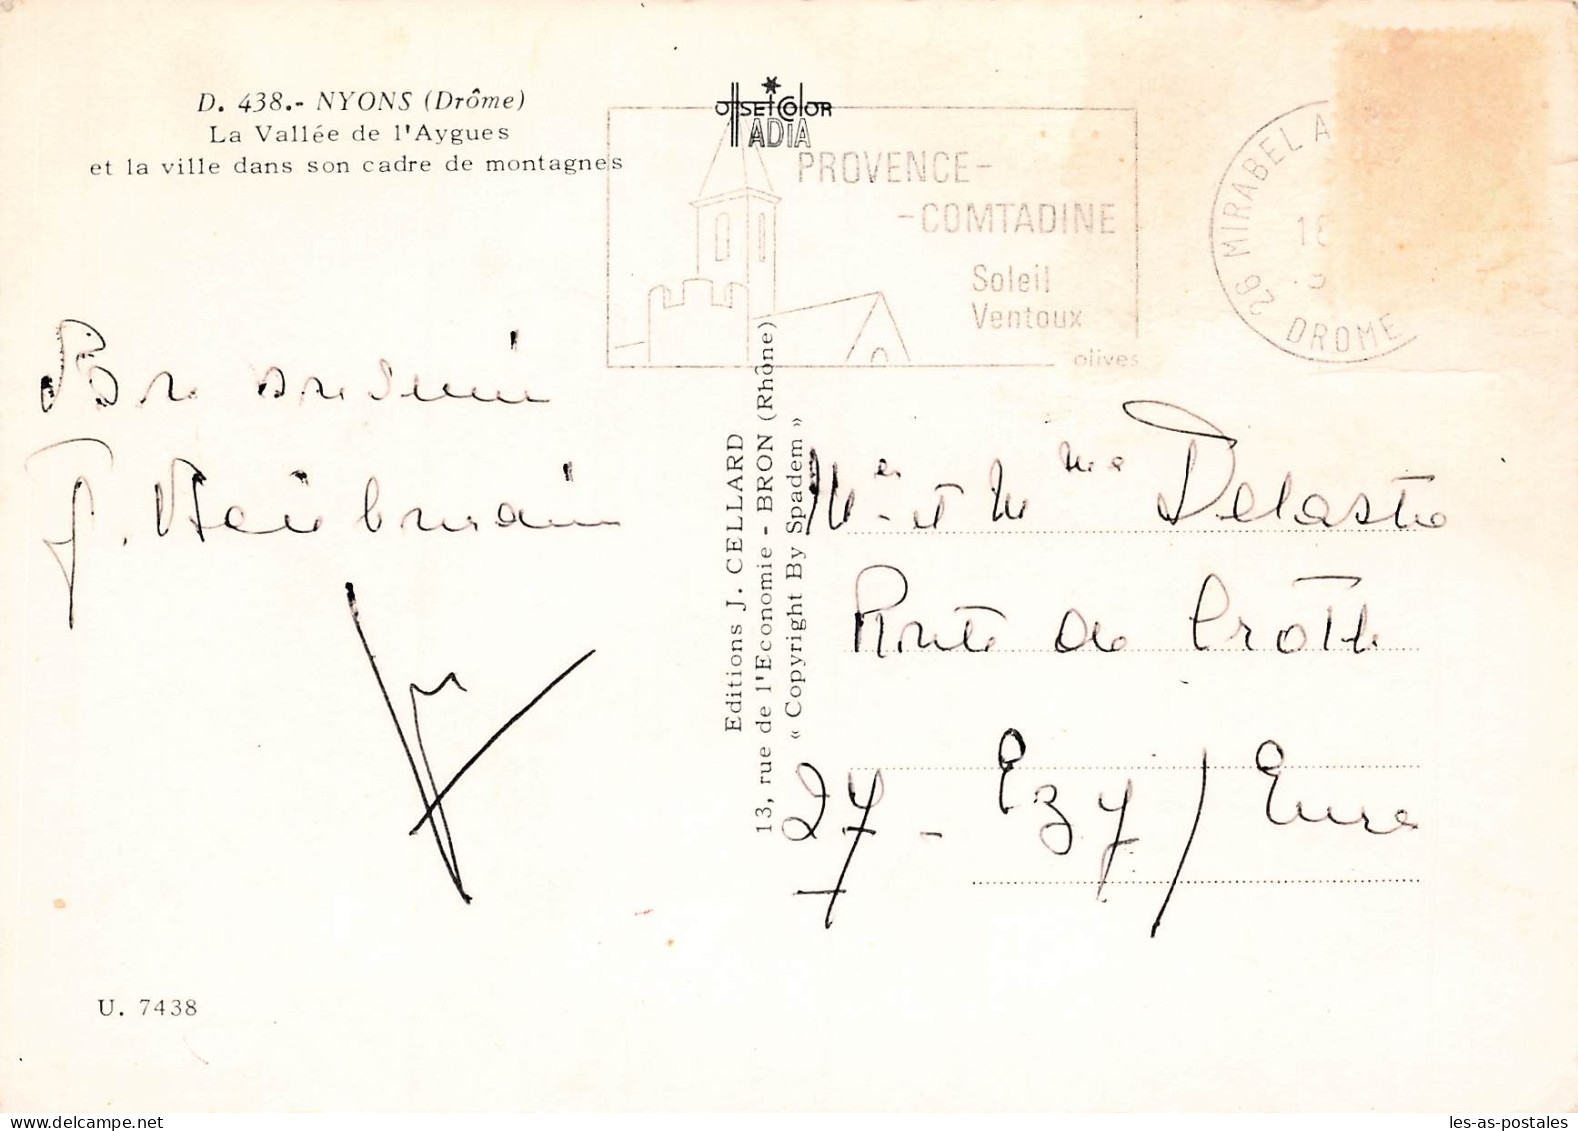 D. 438.- NYONS (Drôme)
La Vallée de l'Aygues
et la ville dans son cadre de montagnes
offset color
ADIA
PROVENCE-
-COMTADINE
Soleil
Ventoux
olives
26 MIRABEL A
18
DROME
Bon souvenir
Editions J. CELLARD
13, rue de l'Economie - BRON (Rhône)
« Copyright By Spadem »
Mr et Mme Delastre
Route de Croth
27 - Ezy / Eure
U. 7438
www.delcampe.net
les-as-postales